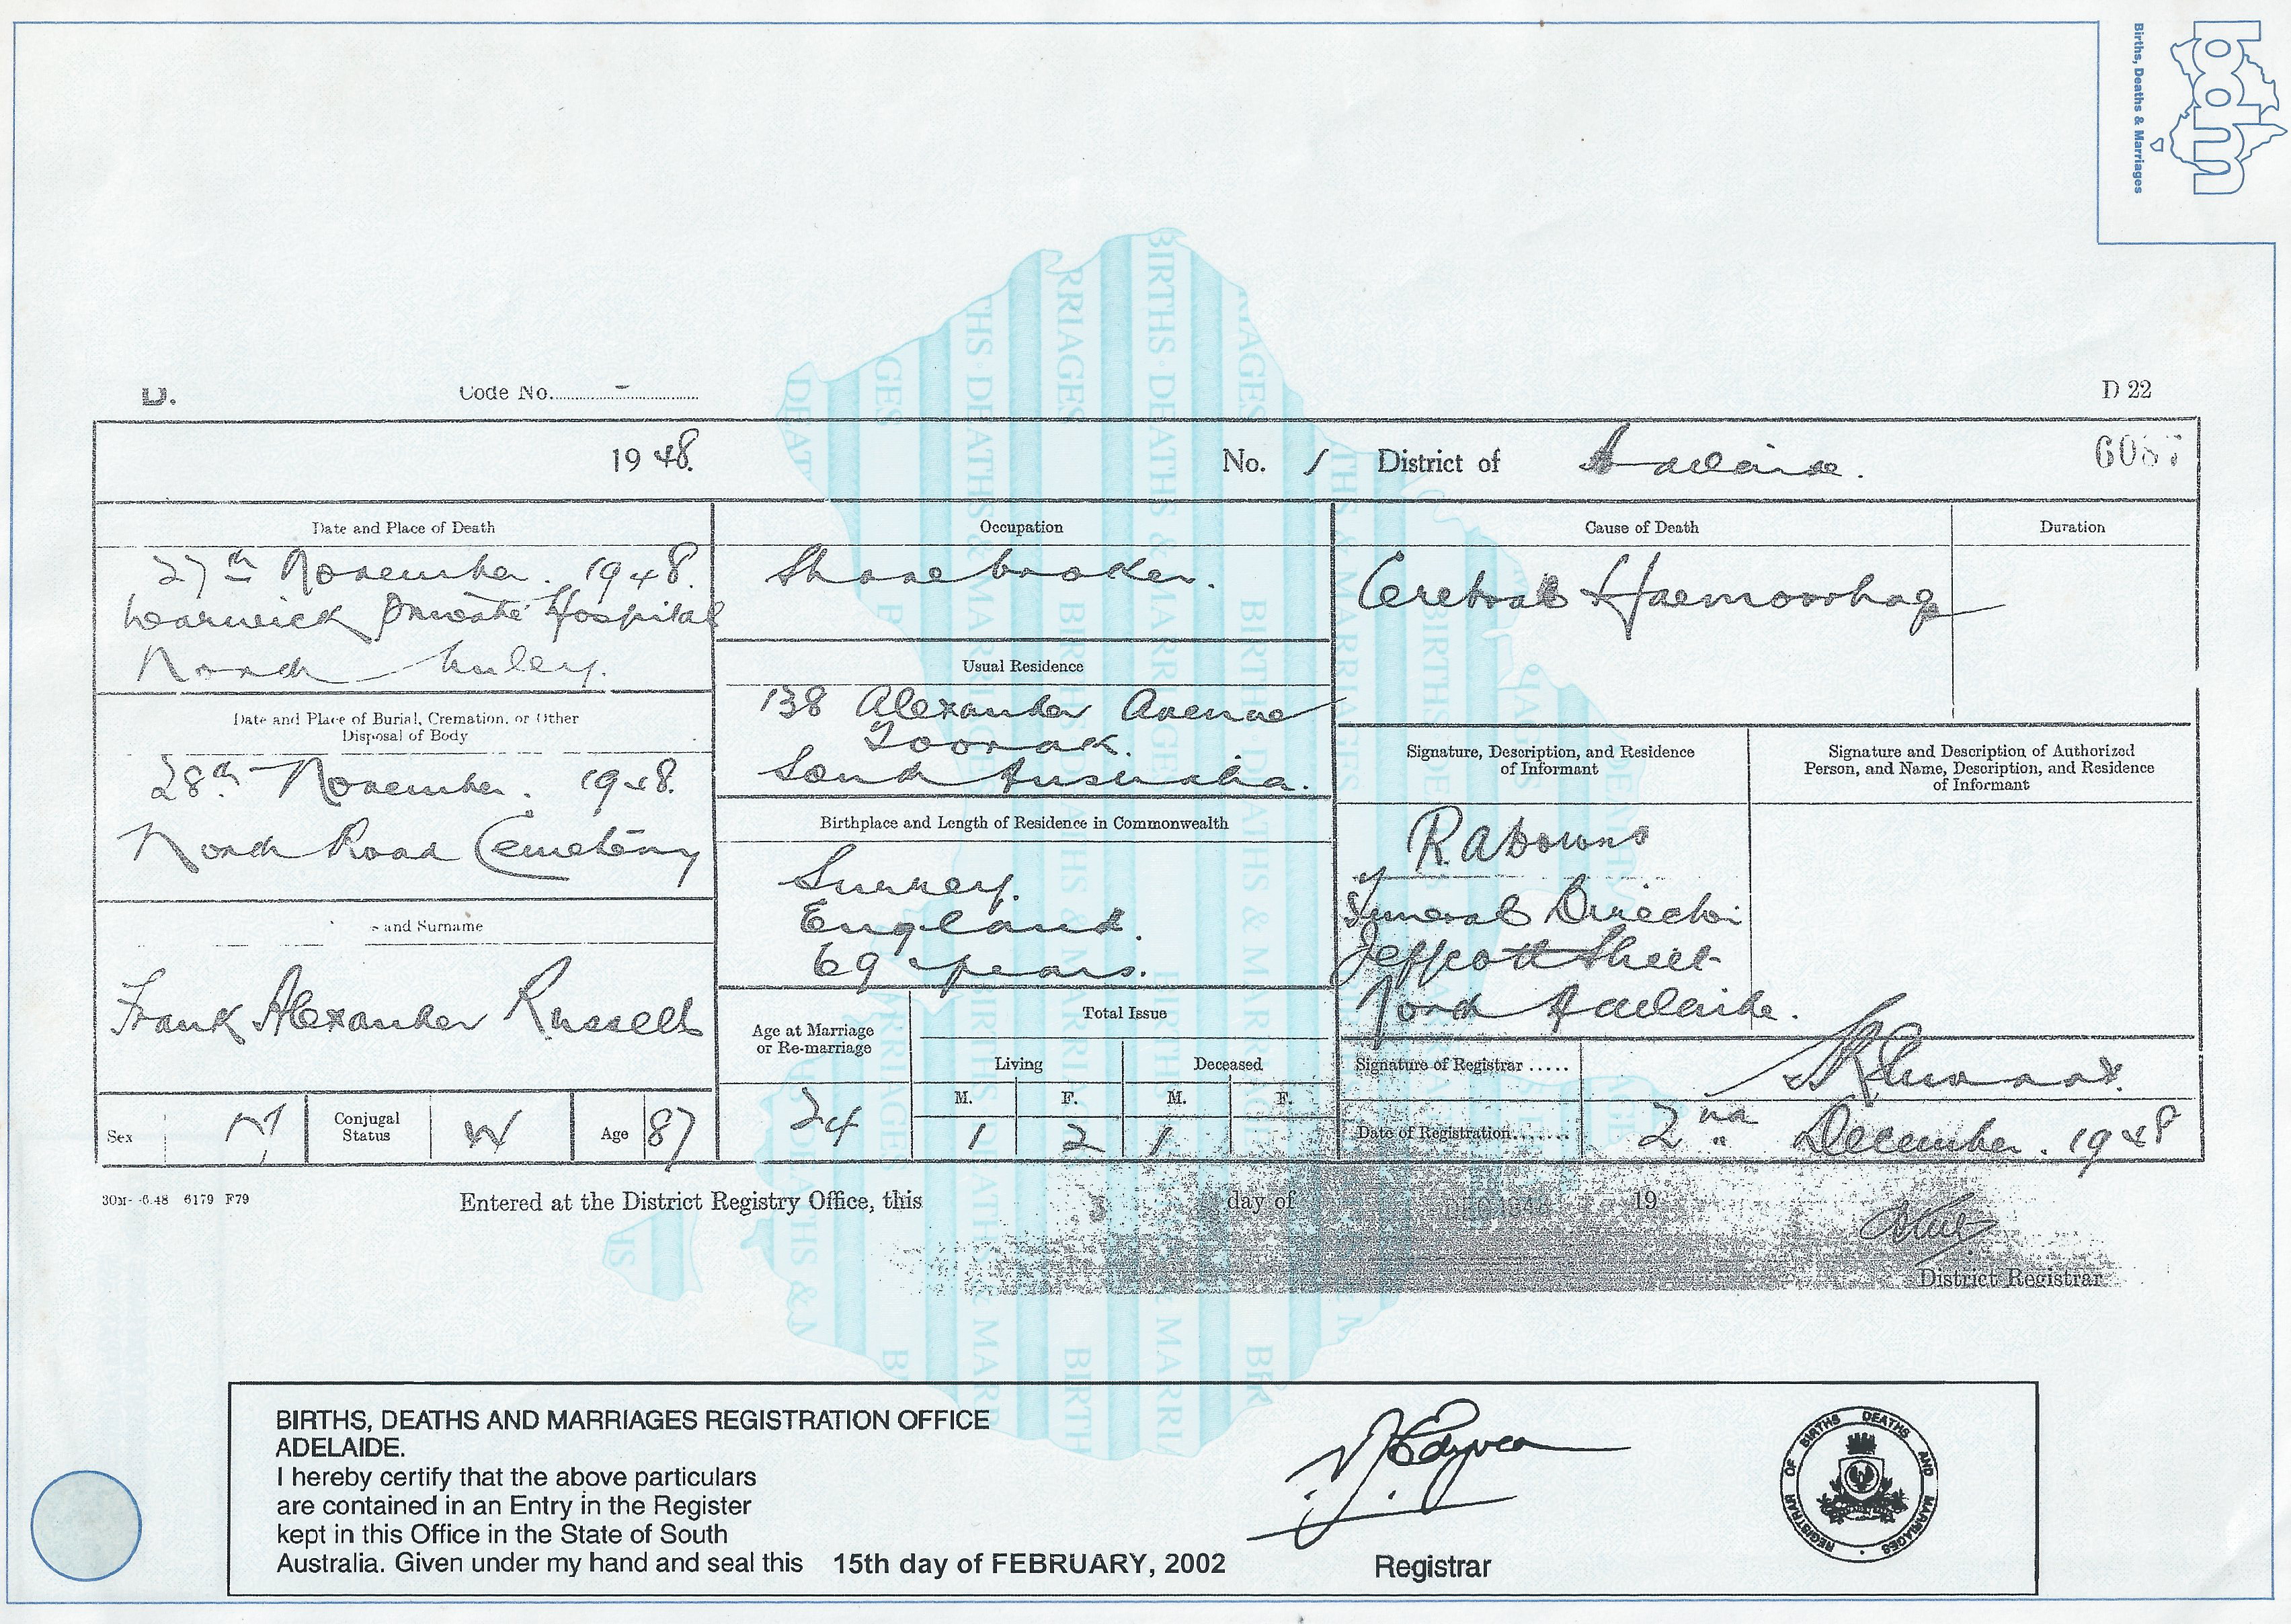 bdm
Births, Deaths & Marriages
D. Code No. - D 22
1948. No. 1 District of Adelaide. 6087
Date and Place of Death
27th November. 1948.
Warwick Private Hospital
North Unley.
Date and Place of Burial, Cremation, or Other
Disposal of Body
28th November. 1948.
North Road Cemetery
and Surname
Frank Alexander Russell
Sex M Conjugal
Status W Age 87
Occupation
Sharebroker.
Usual Residence
138 Alexander Avenue
Toorak.
South Australia.
Birthplace and Length of Residence in Commonwealth
Surrey.
England.
69 years.
Age at Marriage
or Re-marriage
24
Total Issue
Living Deceased
M. F. M. F.
1 2 1
Cause of Death Duration
Cerebral Haemorrhage
Signature, Description, and Residence
of Informant
R. A Downs
Funeral Director
Jeffcott Street
North Adelaide.
Signature and Description of Authorized
Person, and Name, Description, and Residence
of Informant
Signature of Registrar .....
Date of Registration....... 2nd December. 1948
30M- -6.48 6179 F79
Entered at the District Registry Office, this 3 day of DEC 1948 19
District Registrar
BIRTHS, DEATHS AND MARRIAGES REGISTRATION OFFICE
ADELAIDE.
I hereby certify that the above particulars
are contained in an Entry in the Register
kept in this Office in the State of South
Australia. Given under my hand and seal this 15th day of FEBRUARY, 2002
Registrar
REGISTRAR OF BIRTHS DEATHS AND MARRIAGES